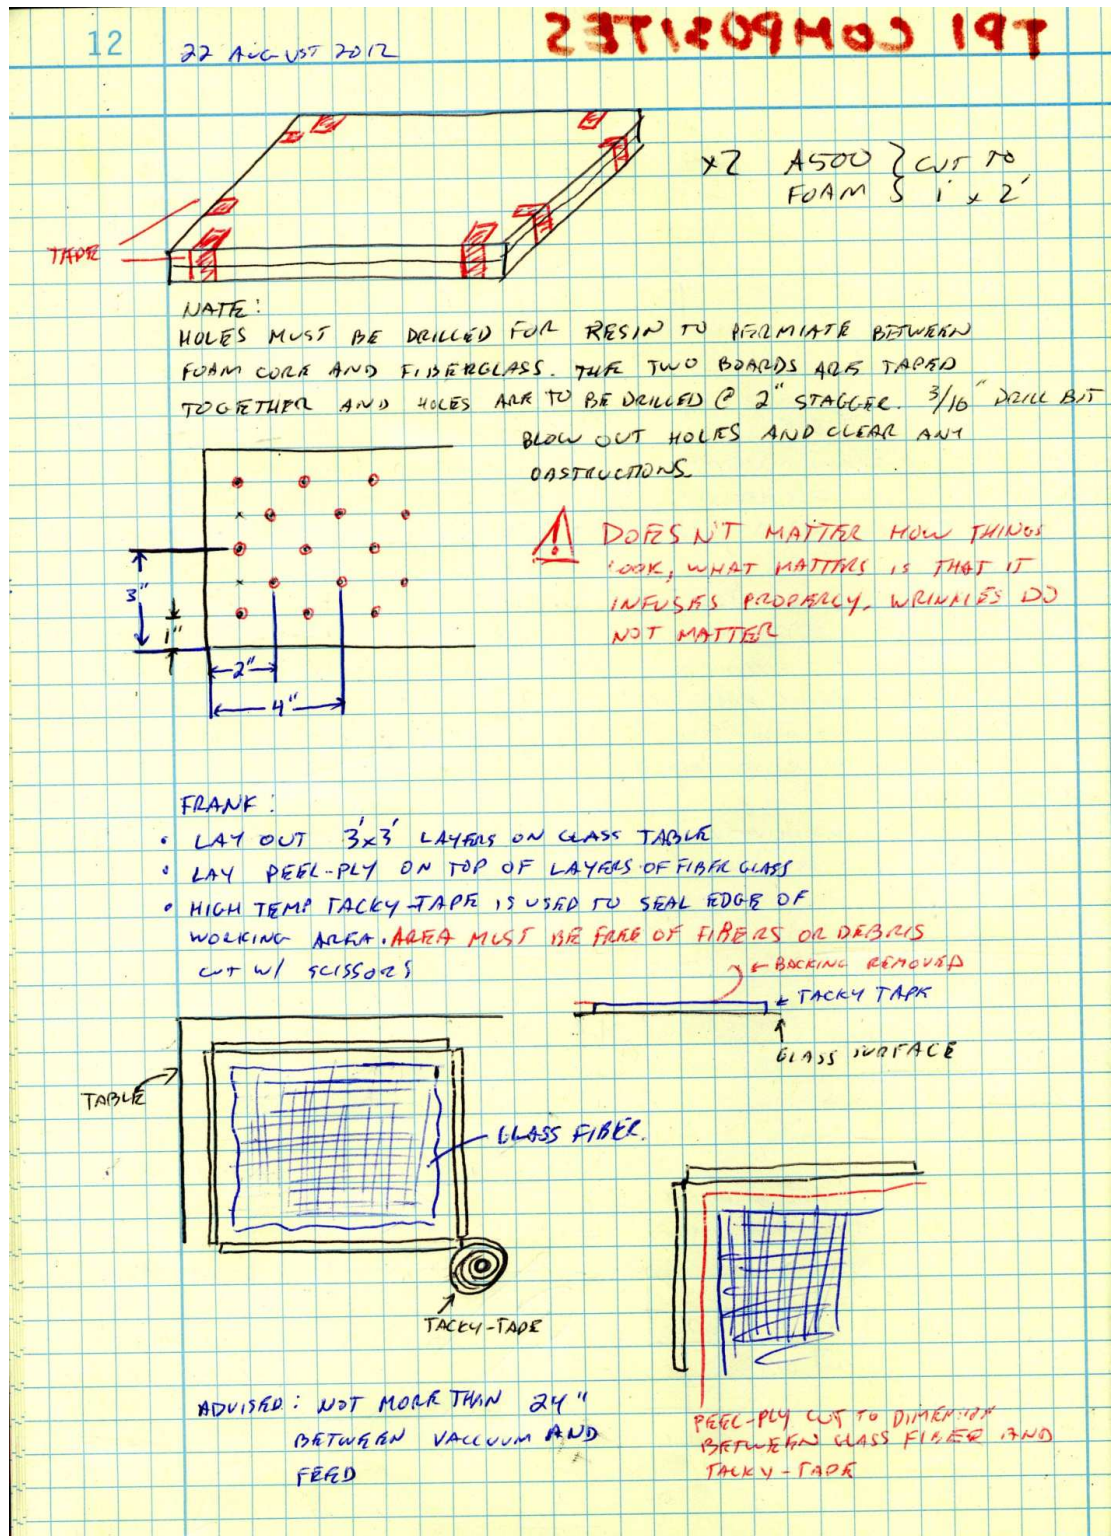 12
22 AUGUST 2012
TPI COMPOSITES
x2 A500 } CUT TO
FOAM } 1' x 2'
TAPE
NATE:
HOLES MUST BE DRILLED FOR RESIN TO PERMIATE BETWEEN
FOAM CORE AND FIBERGLASS. THE TWO BOARDS ARE TAPED
TOGETHER AND HOLES ARE TO BE DRILLED @ 2" STAGGER. 3/16" DRILL BIT
BLOW OUT HOLES AND CLEAR ANY
OBSTRUCTIONS.
3"
1"
2"
4"
DOESN'T MATTER HOW THINGS
LOOK, WHAT MATTERS IS THAT IT
INFUSES PROPERLY. WRINKLES DO
NOT MATTER
FRANK:
• LAY OUT 3'x3' LAYERS ON GLASS TABLE
• LAY PEEL-PLY ON TOP OF LAYERS OF FIBERGLASS
• HIGH TEMP TACKY-TAPE IS USED TO SEAL EDGE OF
WORKING AREA. AREA MUST BE FREE OF FIBERS OR DEBRIS
CUT W/ SCISSORS
BACKING REMOVED
TACKY TAPE
GLASS SURFACE
TABLE
GLASS FIBER.
TACKY-TAPE
ADVISED: NOT MORE THAN 24"
BETWEEN VACCUUM AND
FEED
PEEL-PLY CUT TO DIMENSION
BETWEEN GLASS FIBER AND
TACKY-TAPE